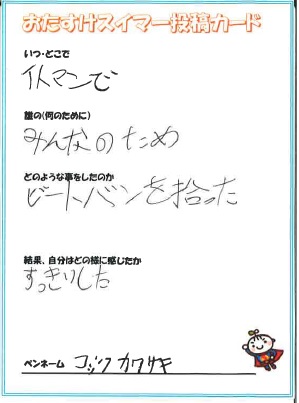 おたすけスイマー投稿カード
いつ・どこで
イトマンで
誰の(何のために)
みんなのため
どのような事をしたのか
ビートバンを拾った
結果、自分はどの様に感じたか
すっきりした
ペンネーム コックカワサキ